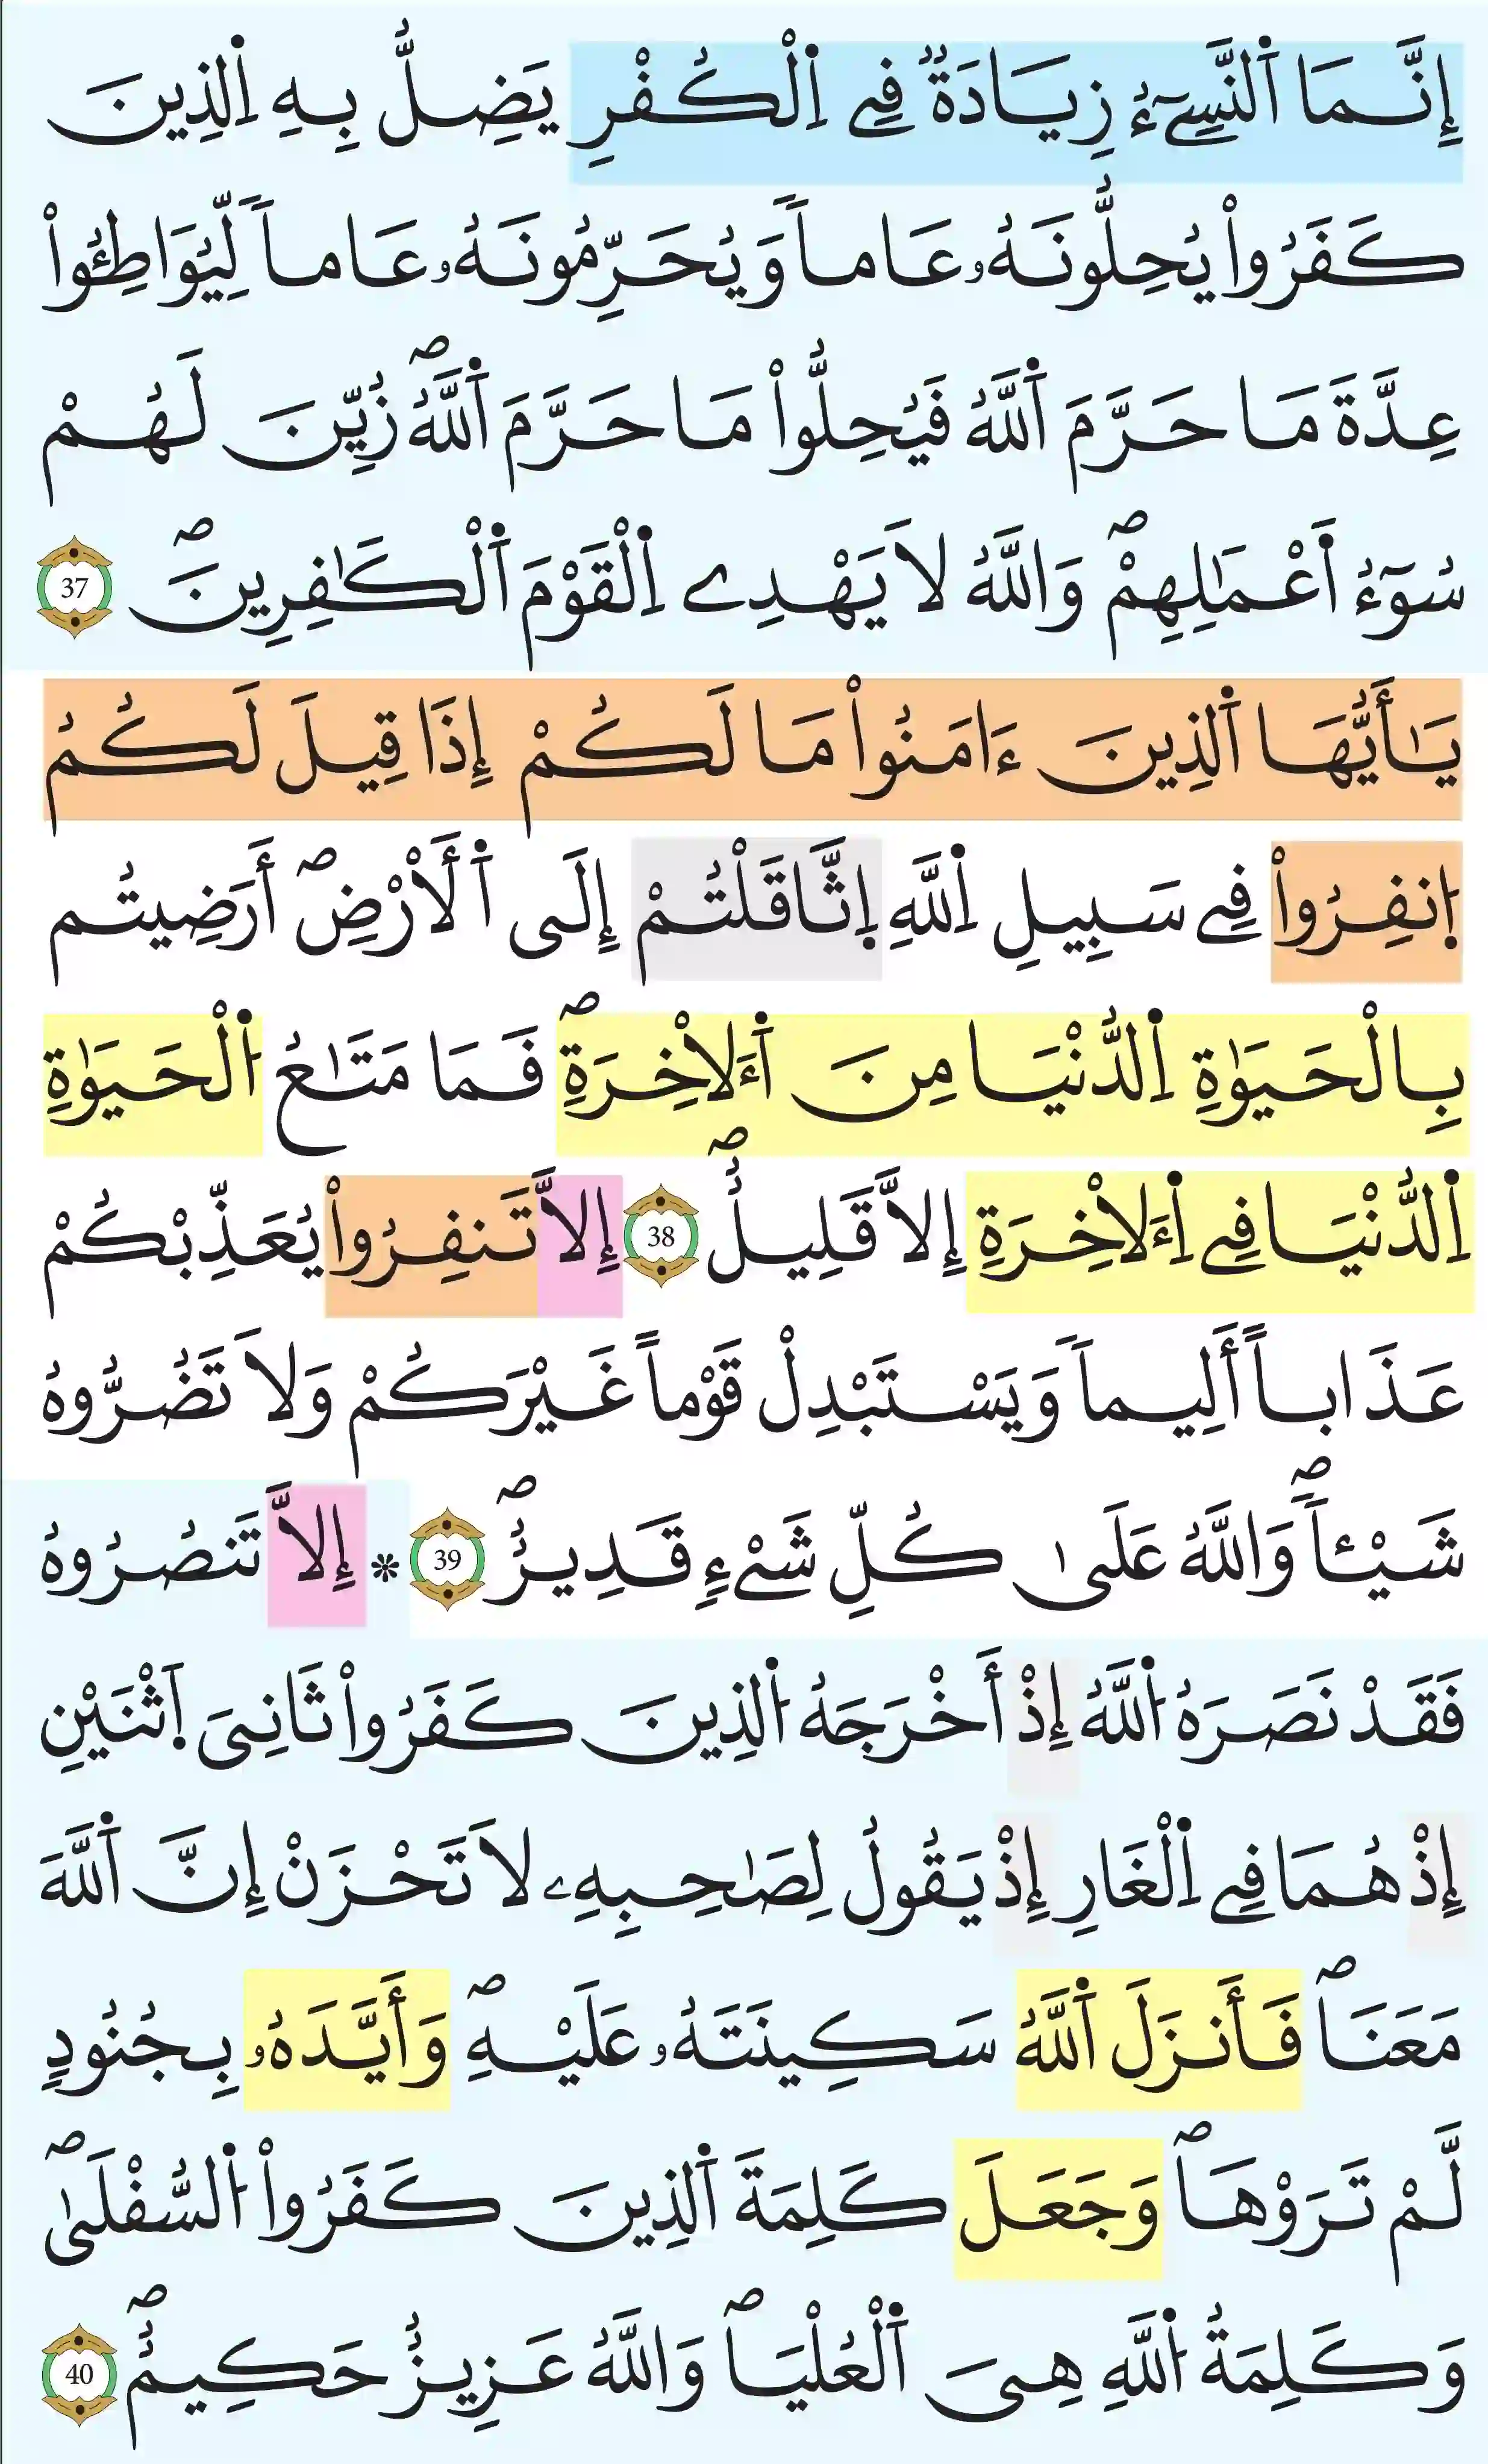 إِنَّمَا اَ۬لنَّسِيٓءُ زِيَادَةٞ فِے اِ۬لْكُفْرِ يَضِلُّ بِهِ اِ۬لذِينَ
كَفَرُواْ يُحِلُّونَهُۥ عَاماٗ وَيُحَرِّمُونَهُۥ عَاماٗ لِّيُوَاطِـُٔواْ
عِدَّةَ مَا حَرَّمَ اَ۬للَّهُ فَيُحِلُّواْ مَا حَرَّمَ اَ۬للَّهُۖ زُيِّنَ لَهُمْ
سُوٓءُ اَ۬عْمَٰلِهِمْۖ وَاللَّهُ لَا يَهْدِے اِ۬لْقَوْمَ اَ۬لْكَٰفِرِينَۖ 37
يَٰأَيُّهَا اَ۬لذِينَ ءَامَنُواْ مَا لَكُمْ إِذَا قِيلَ لَكُمُ
اُ۪نفِرُواْ فِے سَبِيلِ اِ۬للَّهِ اِ۪ثَّاقَلْتُمْ إِلَى اَ۬لَارْضِۖ أَرَضِيتُم
بِالْحَيَوٰةِ اِ۬لدُّنْيَا مِنَ اَ۬لَاخِرَةِۖ فَمَا مَتَٰعُ اُ۬لْحَيَوٰةِ
اِ۬لدُّنْيَا فِے اِ۬لَاخِرَةِ إِلَّا قَلِيلٌۖ 38 إِلَّا تَنفِرُواْ يُعَذِّبْكُمْ
عَذَاباً أَلِيماٗ وَيَسْتَبْدِلْ قَوْماً غَيْرَكُمْ وَلَا تَضُرُّوهُ
شَيْـٔاٗۖ وَاللَّهُ عَلَىٰ كُلِّ شَےْءٖ قَدِيرٌۖ 39 * إِلَّا تَنصُرُوهُ
فَقَدْ نَصَرَهُ اُ۬للَّهُ إِذْ أَخْرَجَهُ اُ۬لذِينَ كَفَرُواْ ثَانِيَ اَ۪ثْنَيْنِ
إِذْ هُمَا فِے اِ۬لْغَارِ إِذْ يَقُولُ لِصَٰحِبِهِۦ لَا تَحْزَنْ إِنَّ اَ۬للَّهَ
مَعَنَاۖ فَأَنزَلَ اَ۬للَّهُ سَكِينَتَهُۥ عَلَيْهِۖ وَأَيَّدَهُۥ بِجُنُودٖ
لَّمْ تَرَوْهَاۖ وَجَعَلَ كَلِمَةَ اَ۬لذِينَ كَفَرُواْ اُ۬لسُّفْلَىٰۖ
وَكَلِمَةُ اُ۬للَّهِ هِيَ اَ۬لْعُلْيَاۖ وَاللَّهُ عَزِيزٌ حَكِيمٌۖ 40